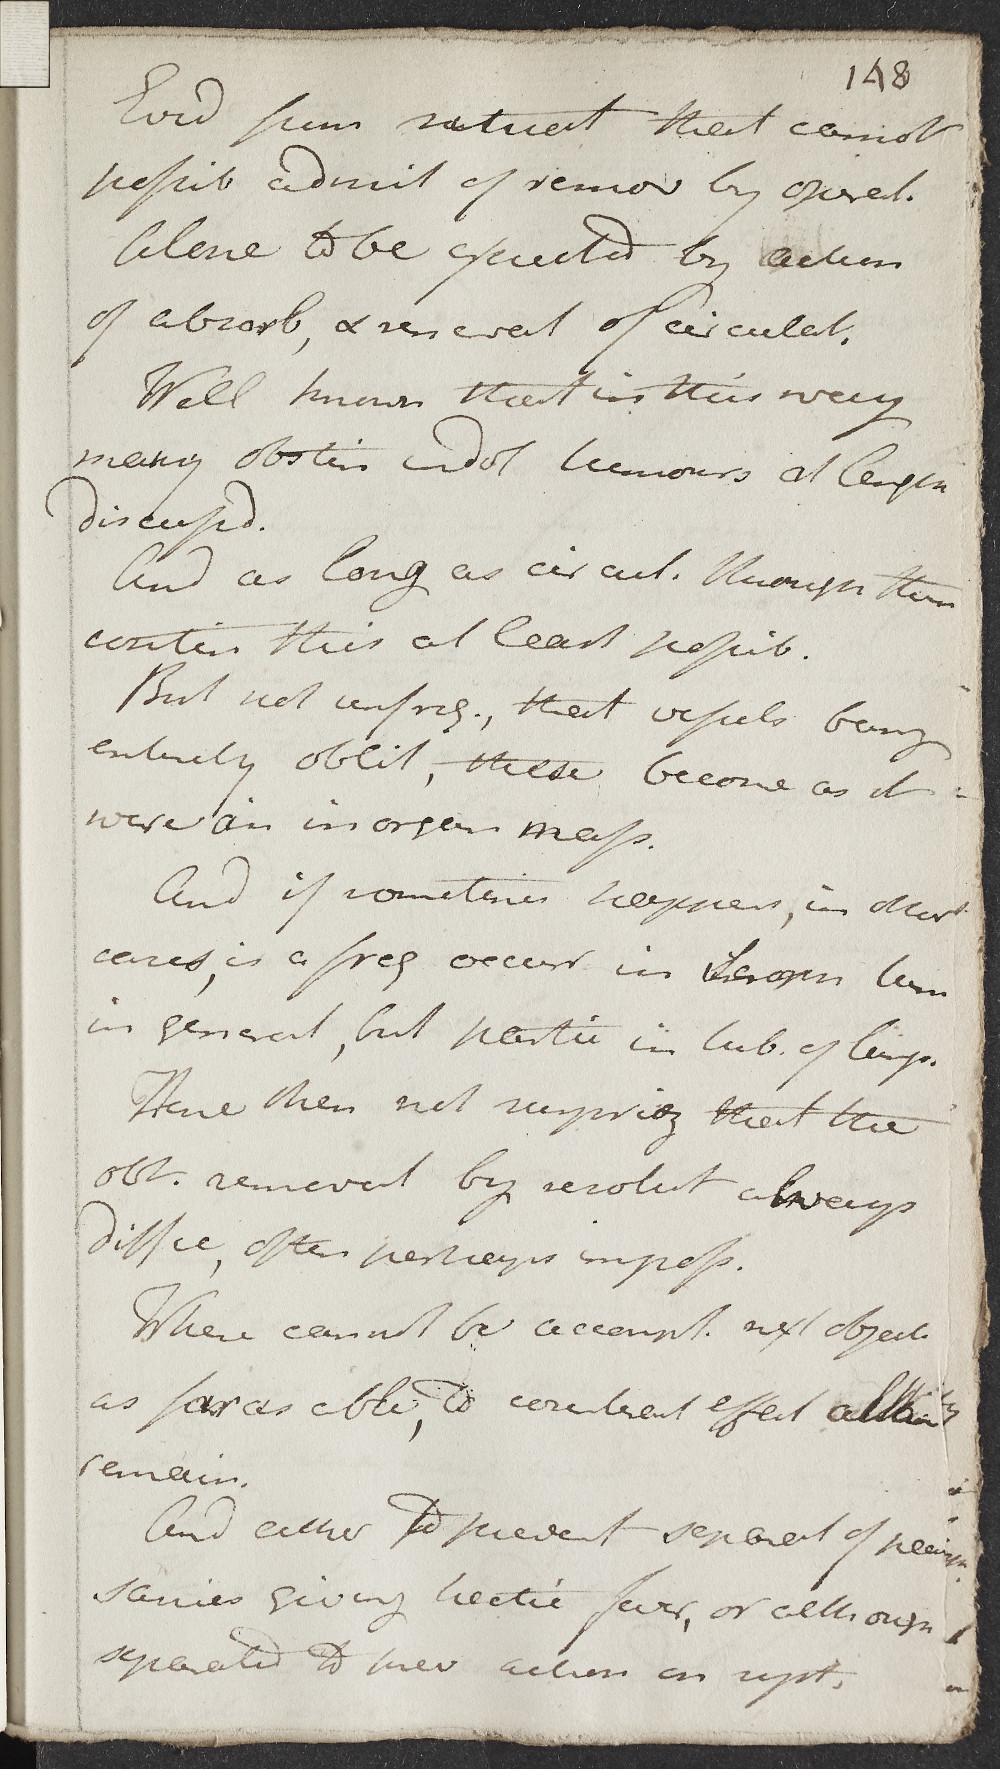 148
Evid from situat that cannot
possib admit of remov by operat.
Alone to be expected by action
of absorb, & renewal of circulat.
Well known that in this way
many obstin indol tumours at length
discussd.
And as long as circul. through them
contin this at least possib.
But not unfreq., that vessels being
entirely oblit, these become as it
were an inorgan mass.
And if sometimes happens, in other
cases, is a freq occurr in Scroph tum
in general, but partic in tub. of lungs.
Hence then not surprizg that the
obt. removal by resolut always
diffic, often perhaps imposs.
Where cannot be accompl. next object
as far as able, to counteract effect
remain.
And either to prevent separat of
sanies giving hectic fever, or although
separated to prev action on syst.